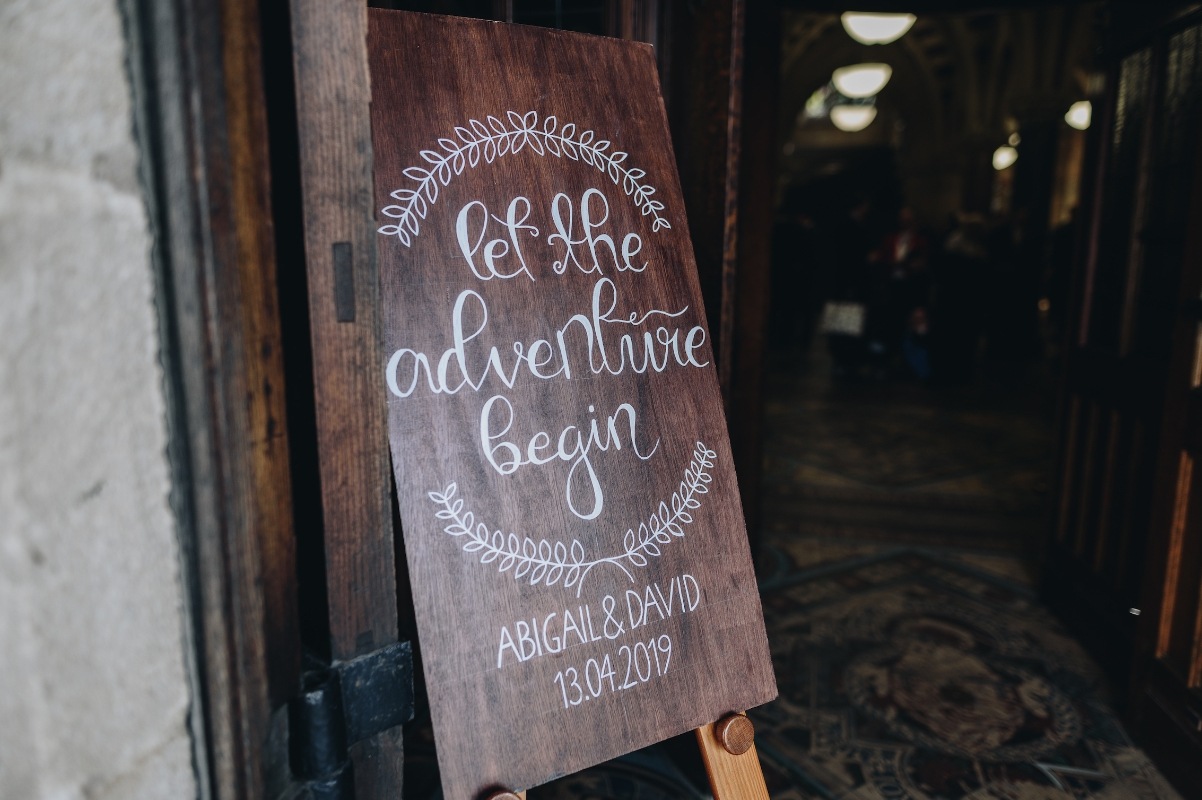 let the
adventure
begin
ABIGAIL & DAVID
13.04.2019